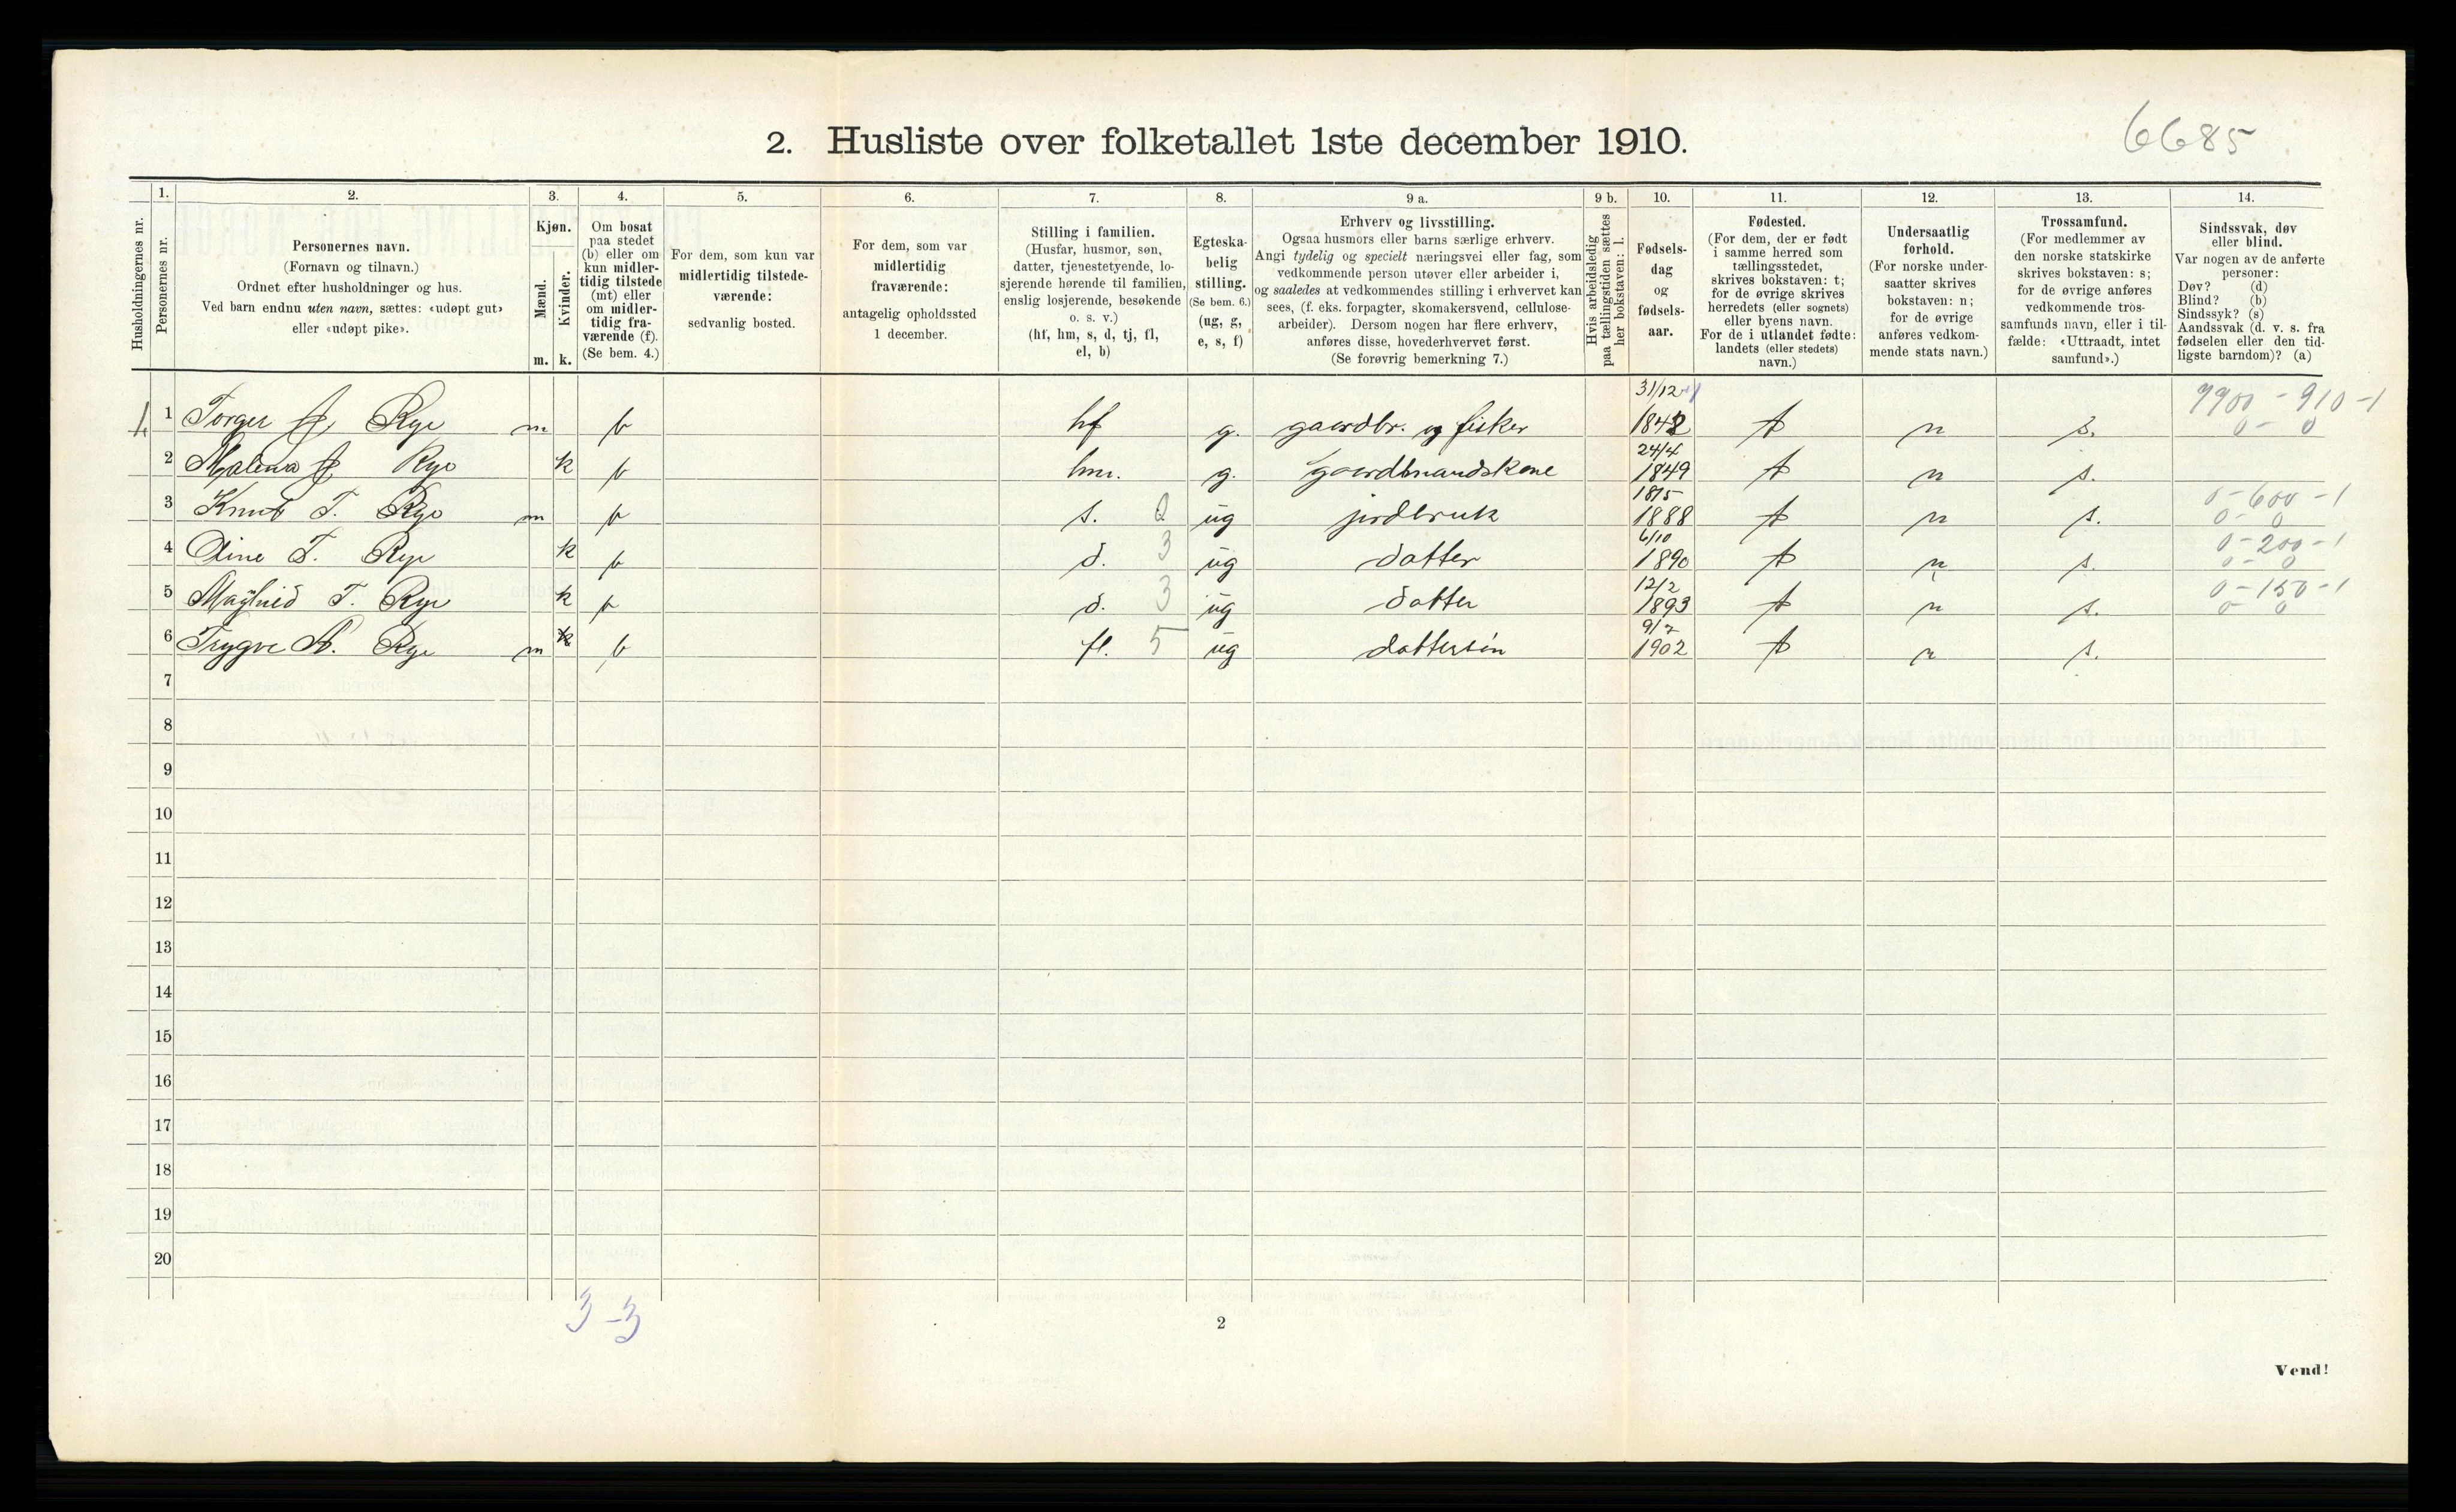 6685
2. Husliste over folketallet 1ste december 1910.
1. 2. 3. 4. 5. 6. 7. 8. 9 a. 9 b. 10. 11. 12. 13. 14.
Husholdningernes nr.
Personernes nr.
Personernes navn.
(Fornavn og tilnavn.)
Ordnet efter husholdninger og hus.
Ved barn endnu uten navn, sættes: «udøpt gut»
eller «udøpt pike».
Kjøn.
Mænd.
Kvinder.
m. k.
Om bosat
paa stedet
(b) eller om
kun midler-
tidig tilstede
(mt) eller
om midler-
tidig fra-
værende (f).
(Se bem. 4.)
For dem, som kun var
midlertidig tilstede-
værende:
sedvanlig bosted.
For dem, som var
midlertidig
fraværende:
antagelig opholdssted
1 december.
Stilling i familien.
(Husfar, husmor, søn,
datter, tjenestetyende, lo-
sjerende hørende til familien,
enslig losjerende, besøkende
o. s. v.)
(hf, hm, s, d, tj, fl,
el, b)
Egteska-
belig
stilling.
(Se bem. 6.)
(ug, g,
e, s, f)
Erhverv og livsstilling.
Ogsaa husmors eller barns særlige erhverv.
Angi tydelig og specielt næringsvei eller fag, som
vedkommende person utøver eller arbeider i,
og saaledes at vedkommendes stilling i erhvervet kan
sees, (f. eks. forpagter, skomakersvend, cellulose-
arbeider). Dersom nogen har flere erhverv,
anføres disse, hovederhvervet først.
(Se forøvrig bemerkning 7.)
Hvis arbeidsledig
paa tællingstiden sættes
her bokstaven: l.
Fødsels-
dag
og
fødsels-
aar.
Fødested.
(For dem, der er født
i samme herred som
tællingsstedet,
skrives bokstaven: t;
for de øvrige skrives
herredets (eller sognets)
eller byens navn.
For de i utlandet fødte:
landets (eller stedets)
navn.)
Undersaatlig
forhold.
(For norske under-
saatter skrives
bokstaven: n;
for de øvrige
anføres vedkom-
mende stats navn.)
Trossamfund.
(For medlemmer av
den norske statskirke
skrives bokstaven: s;
for de øvrige anføres
vedkommende tros-
samfunds navn, eller i til-
fælde: «Uttraadt, intet
samfund».)
Sindssvak, døv
eller blind.
Var nogen av de anførte
personer:
Døv? (d)
Blind? (b)
Sindssyk? (s)
Aandssvak (d. v. s. fra
fødselen eller den tid-
ligste barndom)? (a)
31/12 7900 - 910 - 1
1 Torger Rye m b hf g. gaardbr. og fisker 1842 t n s. 0 - 0
24/4
2 Malena Rye k b hm. g. gaardmandskone 1849 t n s.
18/5 0 - 600 - 1
3 Knut T. Rye m b s. 2 ug jordbruk 1888 t n s. 0 - 0
6/10 0 - 200 - 1
4 Oline T. Rye k b d. 3 ug datter 1890 t n s. 0 - 0
12/2 0 - 150 - 1
5 T. Rye k b d. 3 ug datter 1893 t n s. 0 - 0
9/7
6 Trygve A. Rye m k b fl. 5 ug dattersøn 1902 t n s.
7
8
9
10
11
12
13
14
15
16
17
18
19
20
3 - 3
2
Vend!